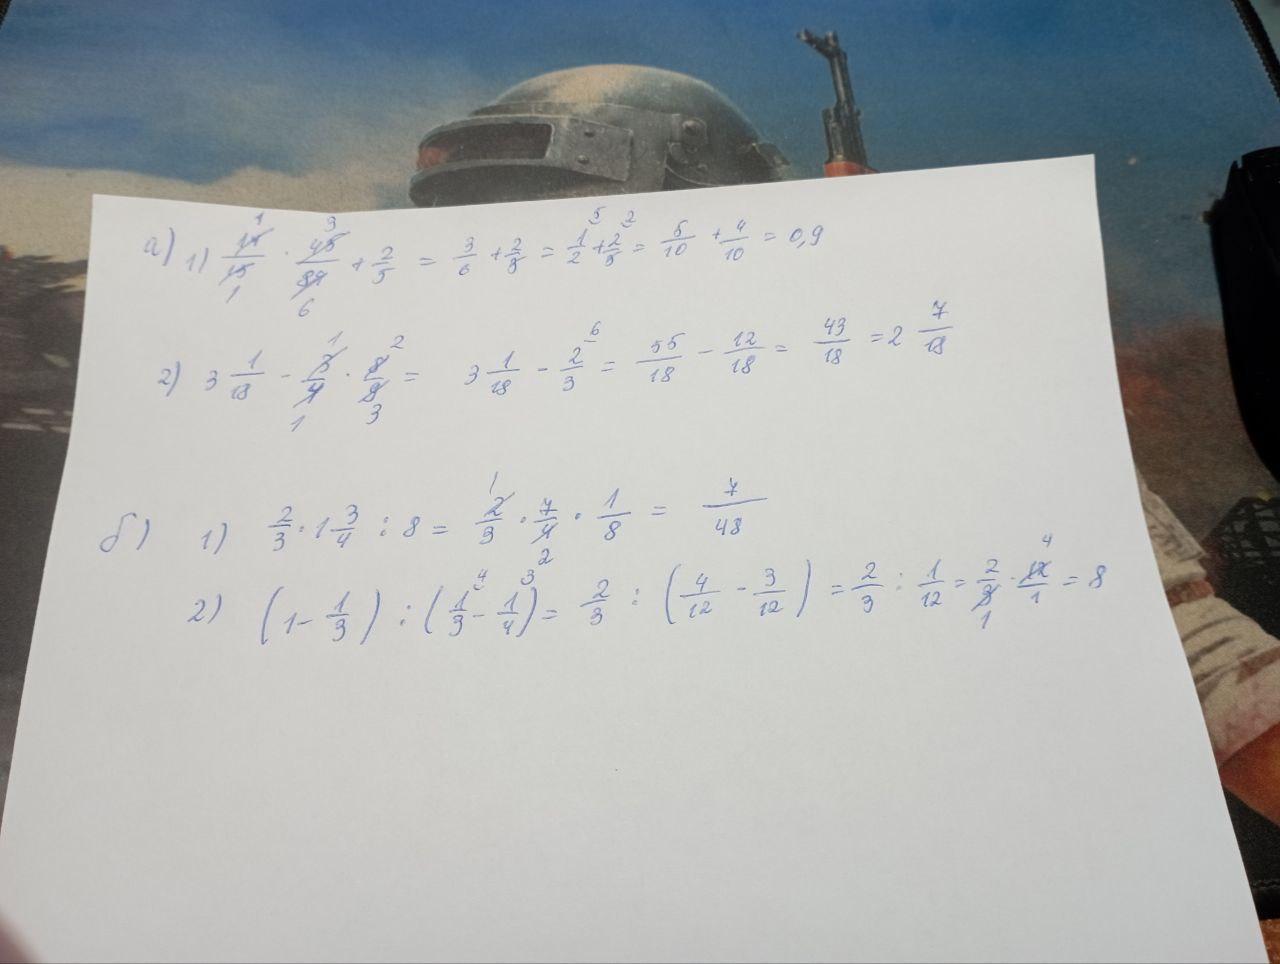 а) 1) 14/15 · 45/84 + 2/5 = 3/6 + 2/5 = 1/2 + 2/5 = 5/10 + 4/10 = 0,9
2) 3 1/18 - 3/4 · 8/9 = 3 1/18 - 2/3 = 55/18 - 12/18 = 43/18 = 2 7/18
б) 1) 2/3 · 1 3/4 : 8 = 2/3 · 7/4 · 1/8 = 7/48
2) (1 - 1/3) : (1/3 - 1/4) = 2/3 : (4/12 - 3/12) = 2/3 : 1/12 = 2/3 · 12/1 = 8